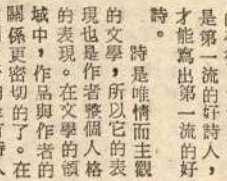 是第一流的好詩人，
才能寫出第一流的好
詩。
詩是唯情而主觀
的文學，所以它的表
現也是作者整個人格
的表現。在文學的領
域中，作品與作者的
關係更密切的了。在